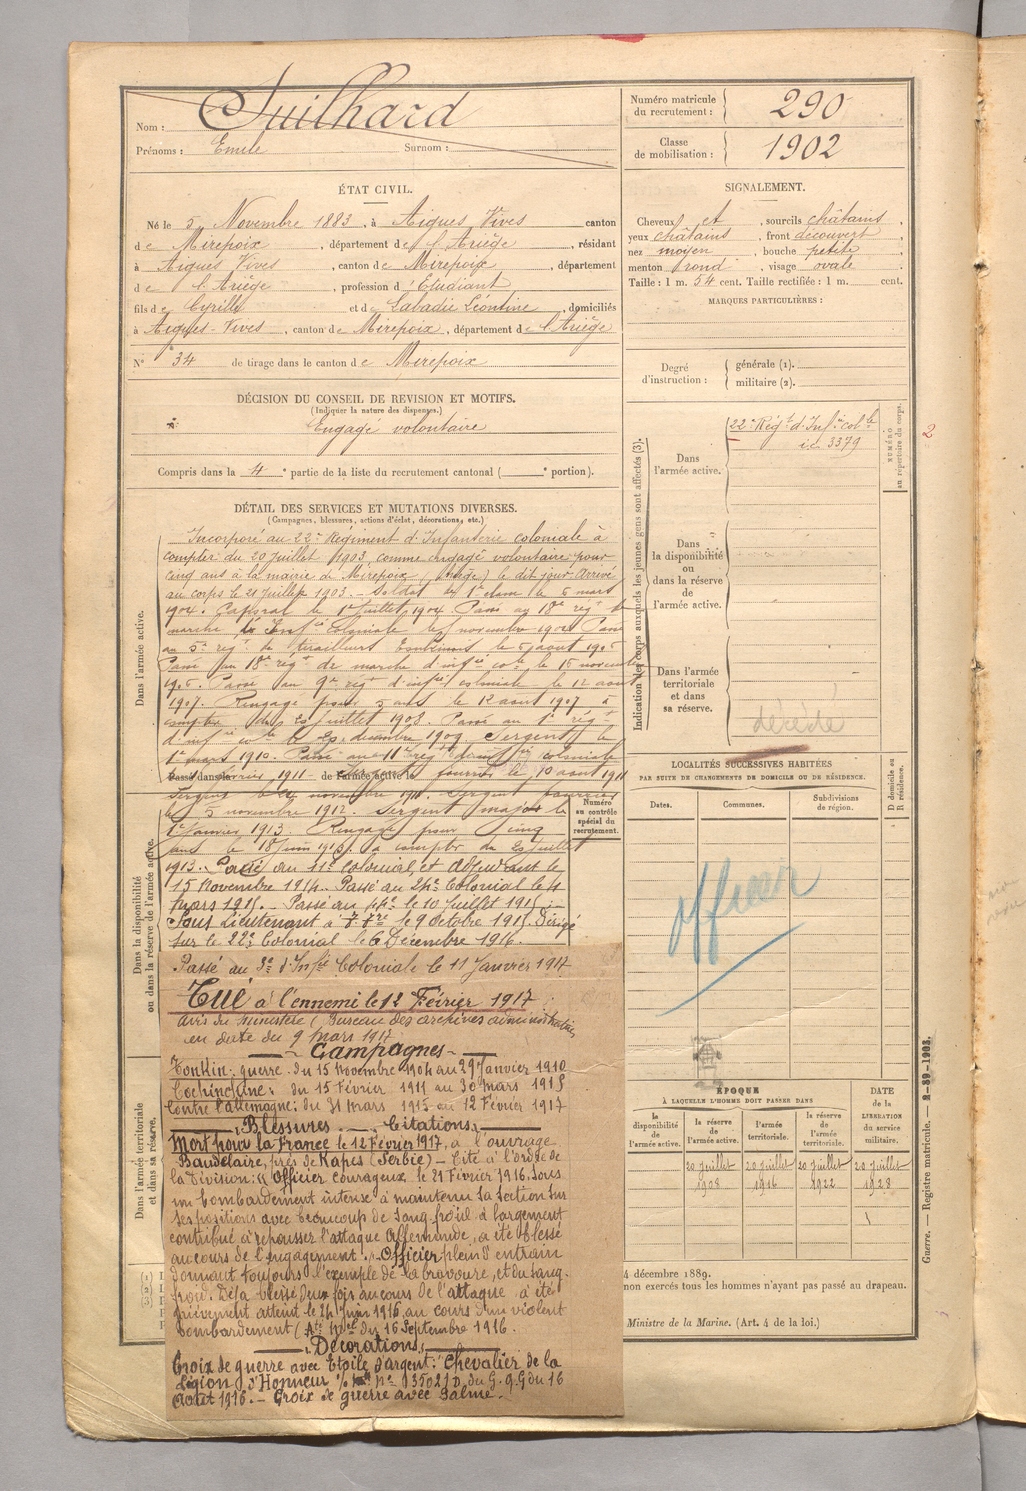 Nom : Guilhard
Prénoms : Emile Surnom :
Numéro matricule du recrutement : 290
Classe de mobilisation : 1902
ÉTAT CIVIL.
Né le 5 Novembre 1883, à Aigues Vives canton
de Mirepoix, département de l'Ariège, résidant
à Aigues Vives, canton de Mirepoix, département
de l'Ariège, profession d'Etudiant
fils de Cyrille et de Labadie Léontine, domiciliés
à Aigues-Vives, canton de Mirepoix, département de l'Ariège
N° 34 de tirage dans le canton de Mirepoix
SIGNALEMENT.
Cheveux et, sourcils châtains,
yeux châtains, front découvert,
nez moyen, bouche petite,
menton rond, visage ovale.
Taille : 1 m. 54 cent. Taille rectifiée : 1 m. cent.
MARQUES PARTICULIÈRES :
Degré d'instruction : générale (1).
militaire (2).
DÉCISION DU CONSEIL DE REVISION ET MOTIFS.
(Indiquer la nature des dispenses.)
Engagé volontaire
Compris dans la 4e partie de la liste du recrutement cantonal ( e portion).
DÉTAIL DES SERVICES ET MUTATIONS DIVERSES.
(Campagnes, blessures, actions d'éclat, décorations, etc.)
Dans l'armée active.
Incorporé au 22e Régiment d'Infanterie coloniale à
compter du 20 Juillet 1903, comme engagé volontaire pour
cinq ans à la mairie de Mirepoix (Ariège) le dit jour. Arrivé
au corps le 21 Juillet 1903. Soldat de 1e classe le 5 mars
1904. Caporal le 1er Juillet 1904 Passé au 18e régt de
marche d'Infie coloniale le novembre 1904 Passé
au 5e régt de tirailleurs Tonkinois le 5 août 1905
Passé au 18e régt de marche d'infie cole le 16 novembre
1905. Passé au 9e régt d'infie coloniale le 12 août
1907. Rengagé pour 5 ans le 12 août 1907 à
compter du 20 Juillet 1908. Passé au 1e régt
d'infie cole le 20 décembre 1909. Sergent le
1er mars 1910. Passé au 11e régt d'infie coloniale
Passé dans février 1911 de l'armée active le fourrier le 10 août 1911
Sergent le novembre 1911. Sergent fourrier
le 5 novembre 1912. Sergent major le
1er Janvier 1913. Rengagé pour cinq
ans le 18 Juin 1913 à compter du 20 Juillet
1913. Passé au 11e colonial et Adjudant le
15 Novembre 1914. Passé au 24e Colonial le 4
mars 1915. Passé au 44e le 10 Juillet 1915;
Sous Lieutenant à T. Tre le 9 Octobre 1915. Dirigé
sur le 22e Colonial le 6 Décembre 1916.
Passé au 3e d'Infie Coloniale le 11 Janvier 1917
Tué à l'ennemi le 12 Février 1917 :
Avis du Ministère (Bureau des archives administratives
en date du 9 mars 1917
Campagnes
Tonkin : guerre. du 15 Novembre 1904 au 29 Janvier 1910
Cochinchine : du 15 Février 1911 au 30 mars 1915
Contre l'allemagne : du 31 mars 1915 au 12 Février 1917
Blessures. Citations.
Mort pour la France le 12 Février 1917, à l'ouvrage
Baudelaire, près de Rapes (Serbie) — Cité à l'ordre de
la Division : « Officier courageux, le 21 Février 1916, sous
un bombardement intense a maintenu sa section sur
ses positions avec beaucoup de sang-froid a largement
contribué à repousser l'attaque allemande, a été blessé
au cours de l'engagement. » Officier plein d'entrain
donnant toujours l'exemple de la bravoure, et du sang-
froid. Déjà blessé deux fois au cours de l'attaque a été
grièvement atteint le 24 Juin 1916, au cours d'un violent
bombardement ( du 16 Septembre 1916.
Décorations.
Croix de guerre avec Etoile d'argent : Chevalier de la
Légion d'Honneur n° 13502 D. du G. Q. G du 16
Août 1916. — Croix de guerre avec Palme.
Numéro au contrôle spécial du recrutement.
Dans la disponibilité ou dans la réserve de l'armée active.
Dans l'armée territoriale et dans sa réserve.
Indication des corps auxquels les jeunes gens sont affectés (3).
Dans l'armée active.
22e Régt d'Infie colle
i.c. 3379
NUMÉRO au répertoire du corps.
2
Dans la disponibilité ou dans la réserve de l'armée active.
Dans l'armée territoriale et dans sa réserve.
décédé
LOCALITÉS SUCCESSIVES HABITÉES
PAR SUITE DE CHANGEMENTS DE DOMICILE OU DE RÉSIDENCE.
Dates. Communes. Subdivisions de région.
D domicile ou R résidence.
officier
ÉPOQUE
À LAQUELLE L'HOMME DOIT PASSER DANS
la disponibilité de l'armée active.
la réserve de l'armée active.
l'armée territoriale.
la réserve de l'armée territoriale.
DATE de la LIBÉRATION du service militaire.
20 Juillet 1908
20 Juillet 1916
20 Juillet 1922
20 Juillet 1928
4 décembre 1889.
non exercés tous les hommes n'ayant pas passé au drapeau.
Ministre de la Marine. (Art. 4 de la loi.)
(1)
(2)
(3)
Guerre. — Registre matricule. — 2-89-1903.